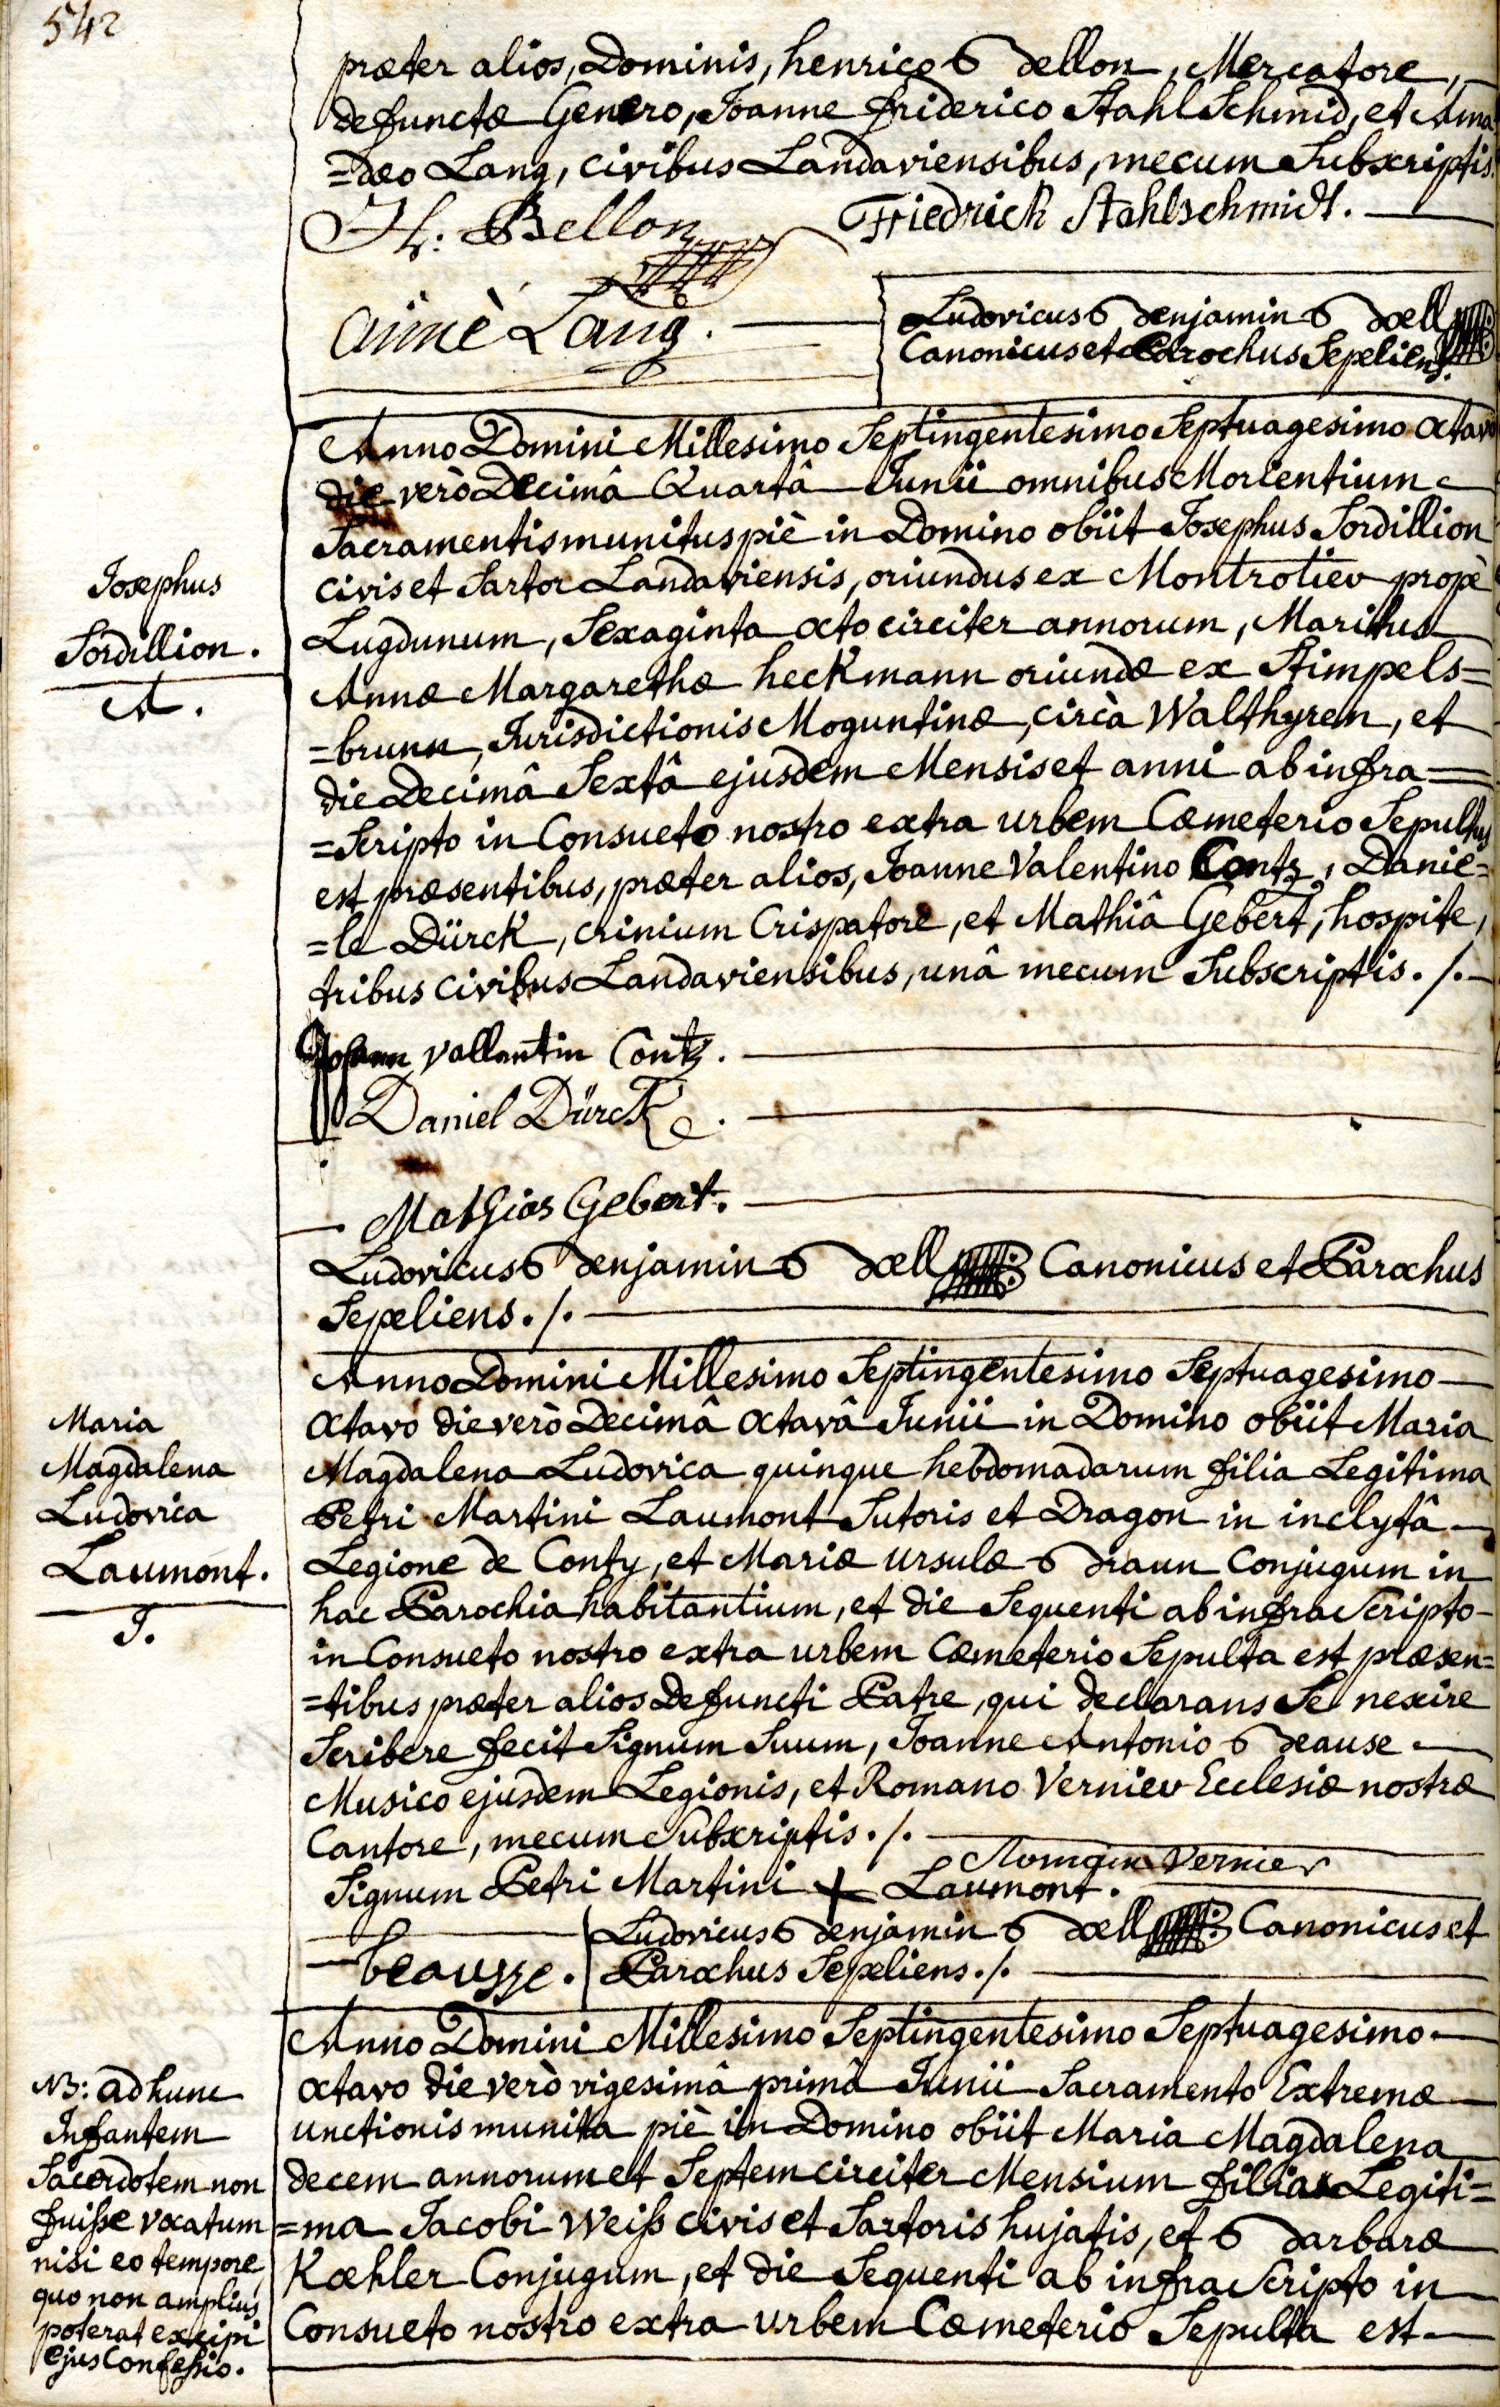 542
præter alios, Dominis, henrico Bellon, Mercatore,
defunctæ Genero, Joanne friderico StahlSchmid, et Ama
=dæo Lang, civibus Landaviensibus, mecum Subscriptis.
H: Bellon
Friedrich Stahlschmidt.
aimè Lang.
Ludovicus Benjamin Bœll
Canonicus et Parochus Sepeliens.
Josephus
Sordillion.
A.
Anno Domini Millesimo Septingentesimo Septuagesimo octavo
die verò Decimâ Quartâ Junii omnibus Morientium
Sacramentis munitus piè in Domino obiit Josephus Sordillion
civis et Sartor Landaviensis, oriundus ex Montrotiev propè
Lugdunum, Sexaginta octo circiter annorum, Maritus
Annæ Margarethæ heckmann oriundæ ex Stimpels=
=brunn, Jurisdictionis Moguntinæ, circà Walthyren, et
die Decimâ Sextâ ejusdem Mensis et anni ab infra=
=Scripto in Consueto nostro extra urbem Cœmeterio Sepultus
est præsentibus, præter alios, Joanne Valentino Contz, Danie=
=le Dürck, crinium Crispatore, et Mathiâ Gebert, hospite,
tribus civibus Landaviensibus, unâ mecum Subscriptis ./.
Johann vallantin Contz.
Daniel Dürck.
Mathias Gebert.
Ludovicus Benjamin Bœll Canonicus et Parochus
Sepeliens ./.
Maria
Magdalena
Ludovica
Laumont.
J.
Anno Domini Millesimo Septingentesimo Septuagesimo
octavo die verò Decimâ octavâ Junii in Domino obiit Maria
Magdalena Ludovica quinque hebdomadarum filia Legitima
Petri Martini Laumont Sutoris et Dragon in inclytâ
Legione de Conty, et Mariæ ursulæ Braun Conjugum in
hac Parochia habitantium, et die Sequenti ab infra Scripto
in Consueto nostro extra urbem Cœmeterio Sepulta est præsen=
=tibus præter alios Defuncti Patre, qui declarans Se nescire
Scribere fecit Signum Suum, Joanne Antonio Beause
Musico ejusdem Legionis, et Romano Verniev Ecclesiæ nostræ
Cantore, mecum Subscriptis ./.
Romain Vernier
Signum Petri Martini + Laumont.
Ludovicus Benjamin Bœll Canonicus et
beausse. Parochus Sepeliens ./.
NB: ad hunc
Infantem
Sacerdotem non
fuisse vocatum
nisi eo tempore,
quo non amplius
poterat excipi
ejus Confessio.
Anno Domini Millesimo Septingentesimo Septuagesimo
octavo die verò vigesimâ primâ Junii Sacramento Extremæ
unctionis munita piè in Domino obiit Maria Magdalena
decem annorum et Septem circiter Mensium filia Legiti=
=ma Jacobi Weiss civis et Sartoris hujatis, et Barbaræ
Kœhler Conjugum, et die Sequenti ab infra Scripto in
Consueto nostro extra urbem Cœmeterio Sepulta est